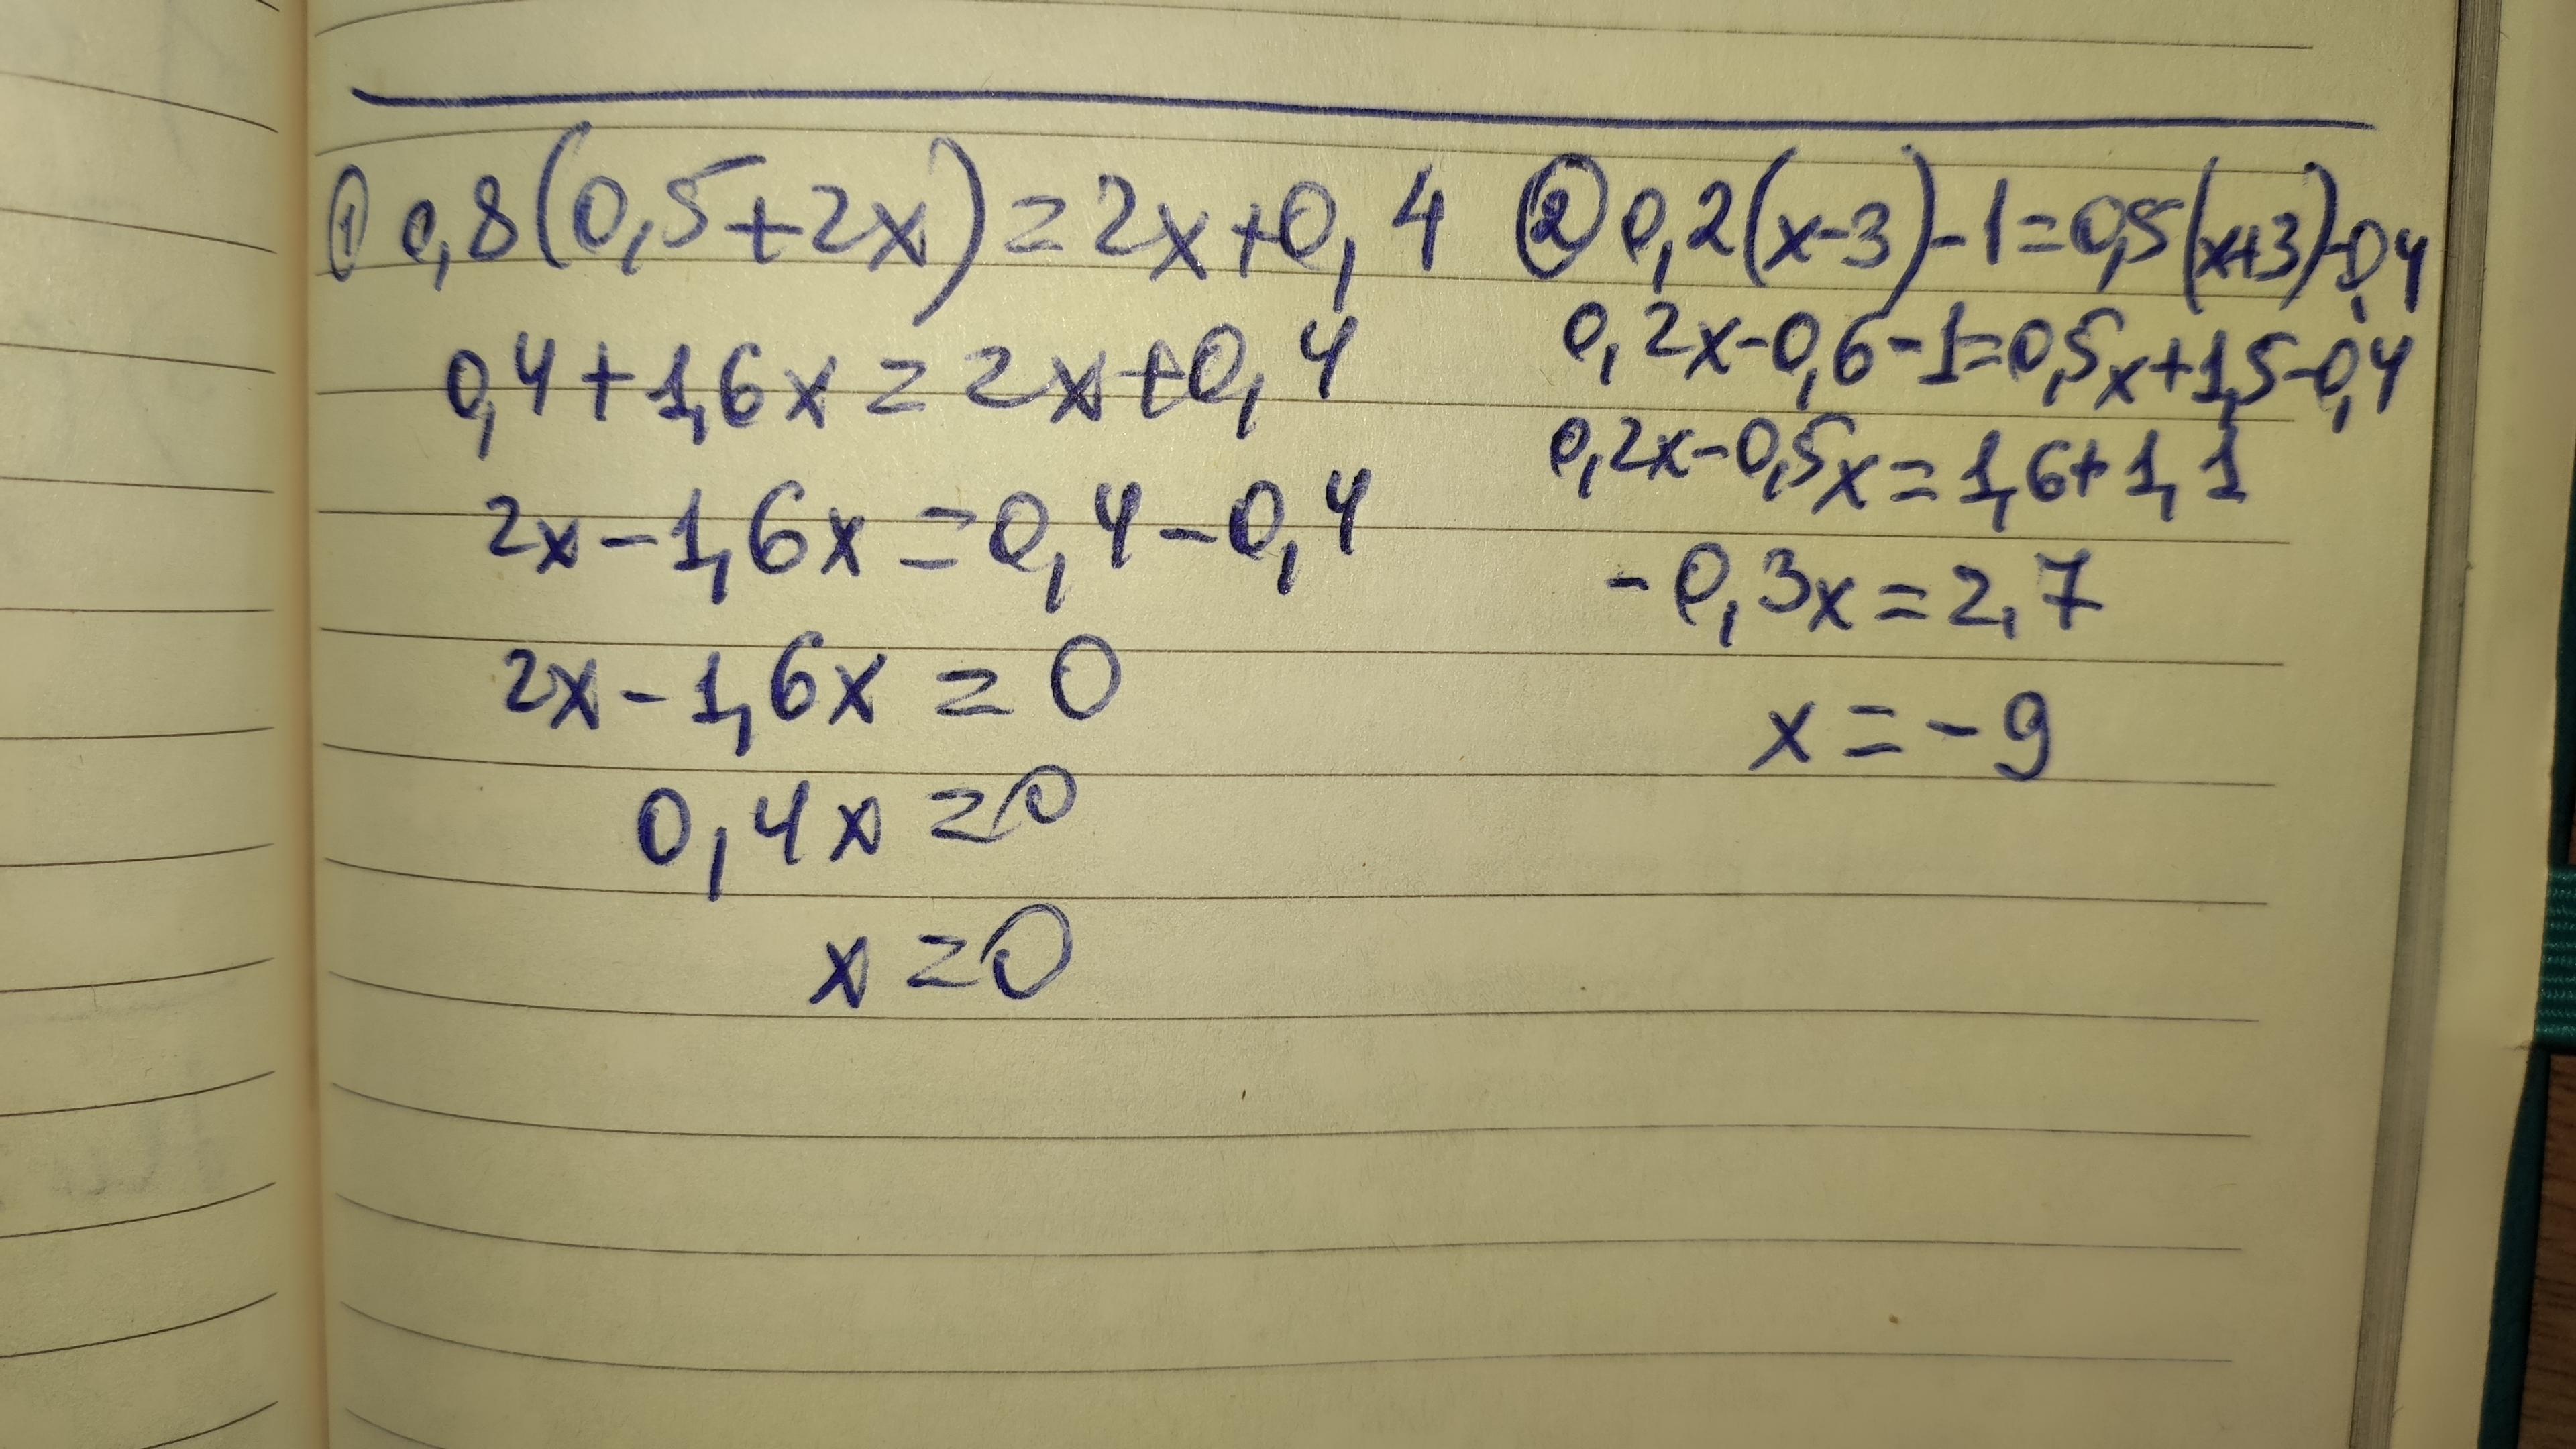 ① 0,8(0,5+2x)=2x+0,4
0,4+1,6x=2x+0,4
2x-1,6x=0,4-0,4
2x-1,6x=0
0,4x=0
x=0
② 0,2(x-3)-1=0,5(x+3)-0,4
0,2x-0,6-1=0,5x+1,5-0,4
0,2x-0,5x=1,6+1,1
-0,3x=2,7
x=-9